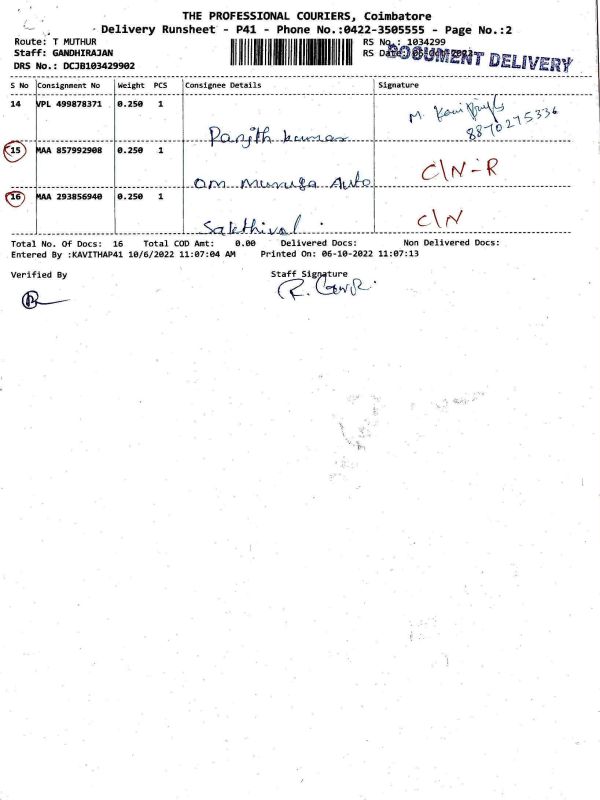 THE PROFESSIONAL COURIERS, Coimbatore
Delivery Runsheet - P41 - Phone No.:0422-3505555 - Page No.:2
Route: T MUTHUR RS No.: 1034299
Staff: GANDHIRAJAN RS Date:
DOCUMENT DELIVERY
DRS No.: DCJB103429902
S No Consignment No Weight PCS Consignee Details Signature
14 VPL 499878371 0.250 1 M.
8870275336
Panjith kumar
15 MAA 857992908 0.250 1 C/N-R
om muruga Auto
16 MAA 293856940 0.250 1 C/N
Sakthival
Total No. Of Docs: 16 Total COD Amt: 0.00 Delivered Docs: Non Delivered Docs:
Entered By :KAVITHAP41 10/6/2022 11:07:04 AM Printed On: 06-10-2022 11:07:13
Verified By Staff Signature
R.